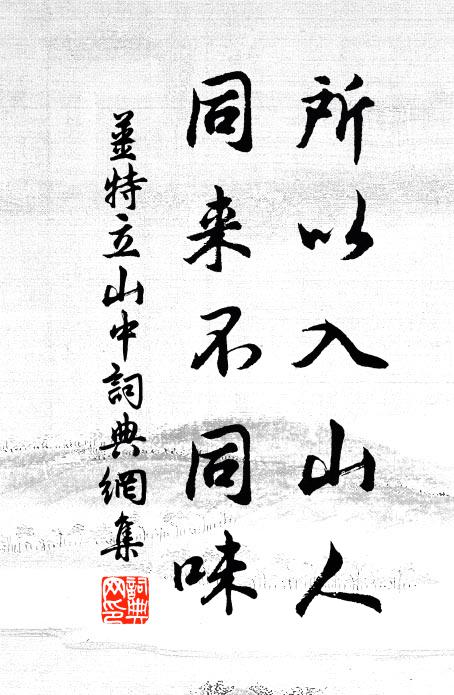 所以入山人
同来不同味
薑特立山中詞典網集
詞典網印